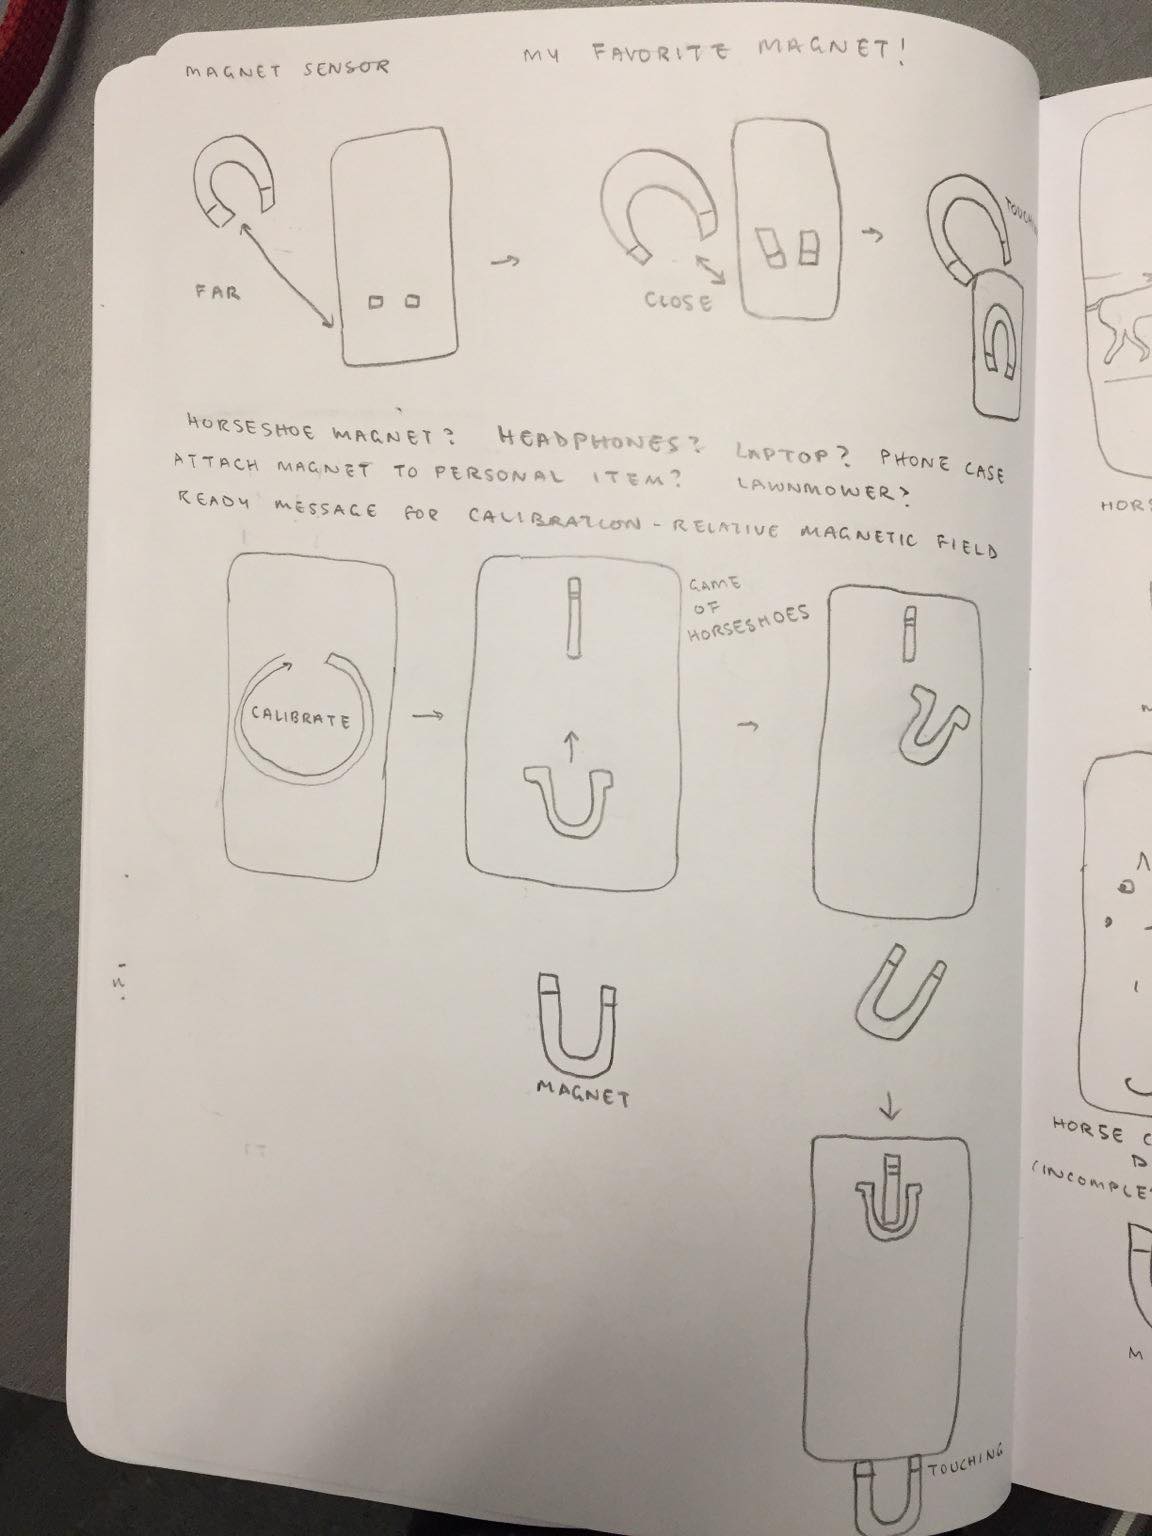 MAGNET SENSOR
MY FAVORITE MAGNET!
FAR
CLOSE
HORSESHOE MAGNET? HEADPHONES? LAPTOP? PHONE CASE
ATTACH MAGNET TO PERSONAL ITEM? LAWNMOWER?
READY MESSAGE FOR CALIBRATION - RELATIVE MAGNETIC FIELD
CALIBRATE
GAME
OF
HORSESHOES
MAGNET
TOUCHING
HORSE